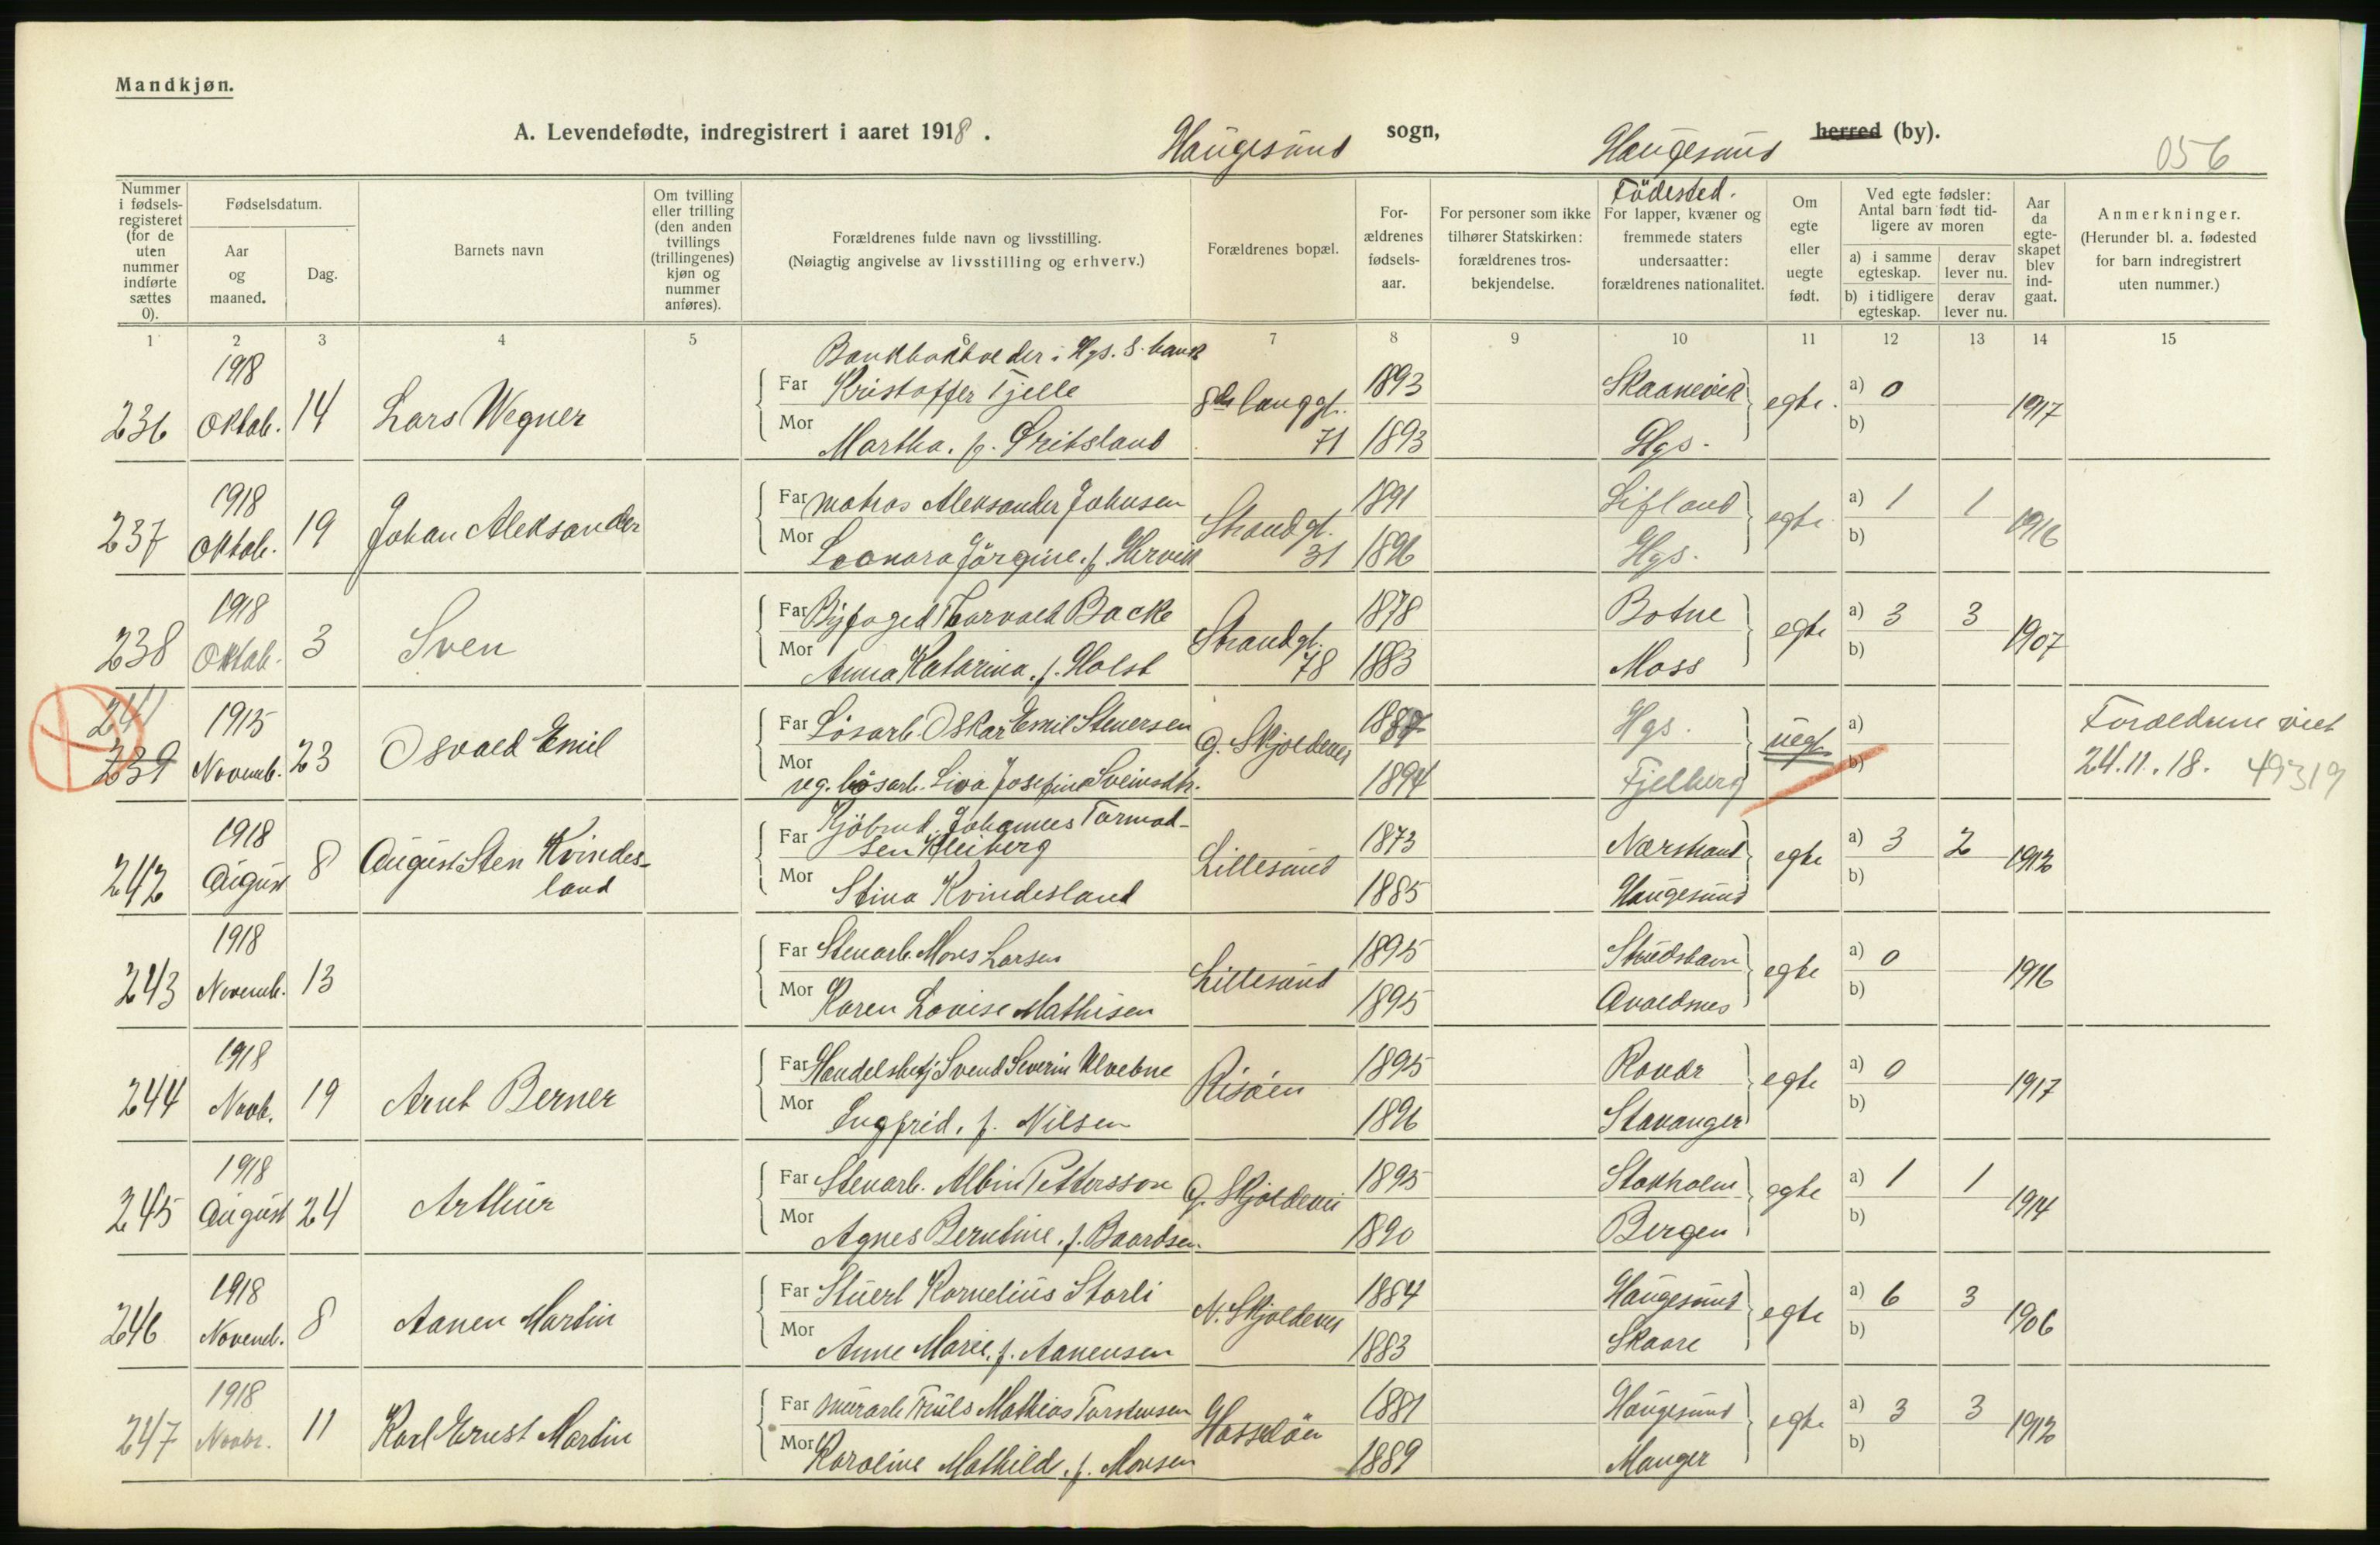 Mandkjøn.
A. Levendefødte, indregistrert i aaret 1918. Haugesund sogn, Haugesund herred (by).
056
Nummer i fødsels-registeret (for de uten nummer indførte sættes 0).
Fødselsdatum.
Aar og maaned.
Dag.
Barnets navn
Om tvilling eller trilling (den anden tvillings (trillingenes) kjøn og nummer anføres).
Forældrenes fulde navn og livsstilling.
(Nøiagtig angivelse av livsstilling og erhverv.)
Forældrenes bopæl.
For-ældrenes fødsels-aar.
For personer som ikke tilhører Statskirken: forældrenes tros-bekjendelse.
Födested.
For lapper, kvæner og fremmede staters undersaatter: forældrenes nationalitet.
Om egte eller uegte født.
Ved egte fødsler: Antal barn født tid-ligere av moren
a) i samme egteskap.
derav lever nu.
b) i tidligere egteskap.
derav lever nu.
Aar da egte-skapet blev ind-gaat.
Anmerkninger.
(Herunder bl. a. fødested for barn indregistrert uten nummer.)
1 2 3 4 5 6 7 8 9 10 11 12 13 14 15
236 1918 Oktob. 14 Lars Wegner
Bankbokholder i Hgs. S. bank
Far Kristoffer Tjelle 1893 Skaanevik
Mor Martha. f. Gritsland 71 1893 Hgs.
egte. a) 0 b) 1917
237 1918 Oktob. 19 Johan Aleksander
Far matros Aleksander Johnsen 1891 Lifland
Mor Leonora Jörgine. f. Hervik Strandgt. 31 1896 Hgs.
egte a) 1 1 b) 1916
238 1918 Oktob. 3 Sven
Far Byfoged Thorvald Backe 1878 Botne
Mor Anna Katarina. f. Holst Strandgt. 78 1883 Moss
egte a) 3 3 b) 1907
241 239 1915 Novemb. 23 Osvald Emil
Far Lösarb. Oskar Emil Stenersen G. Skjoldevei 1887 Hgs.
Mor ug. lösarb. Liva Josefine Sveinsdtr. 1894 Fjelberg
uegt. a) b)
Foraeldrene viet
24.11.18. 49319
242 1918 August 8 August Sten Kvindes-
land
Far Kjöbmd. Johannes Tormod-
sen Kleiberg Lillesund 1873 Nærstrand
Mor Stina Kvindesland 1885 Haugesund
egte a) 3 2 b) 1912
243 1918 Novemb. 13
Far Stenarb. Mons Larsen Lillesund 1895 Studshavn
Mor Karen Lovise Mathisen 1895 Avaldsnes
egte a) 0 b) 1916
244 1918 Novb. 19 Arnt Berner
Far Handelsbetj Svend Severin Ulvebne Risöen 1895
Mor Ingfrid. f. Nilsen 1896 Stavanger
egte a) 0 b) 1917
245 1918 August 24 Arthur
Far Stenarb. Albin Pettersson G. Skjoldevei 1895 Stokholm
Mor Agnes Berntine. f. Baardsen 1890 Bergen
egte a) 1 1 b) 1914
246 1918 Novemb. 8 Aanen Martin
Far Stuert Kornelius Storli N. Skjoldevei 1884 Haugesund
Mor Anne Marie. f. Aanensen 1883 Skaare
egte a) 6 3 b) 1906
247 1918 Novbr. 11 Karl Ernst Martin
Far murarb Truls Mathias Torstensen Hasselöen 1881 Haugesund
Mor Karoline Mathilde. f. Monsen 1889 Manger
egte a) 3 3 b) 1912